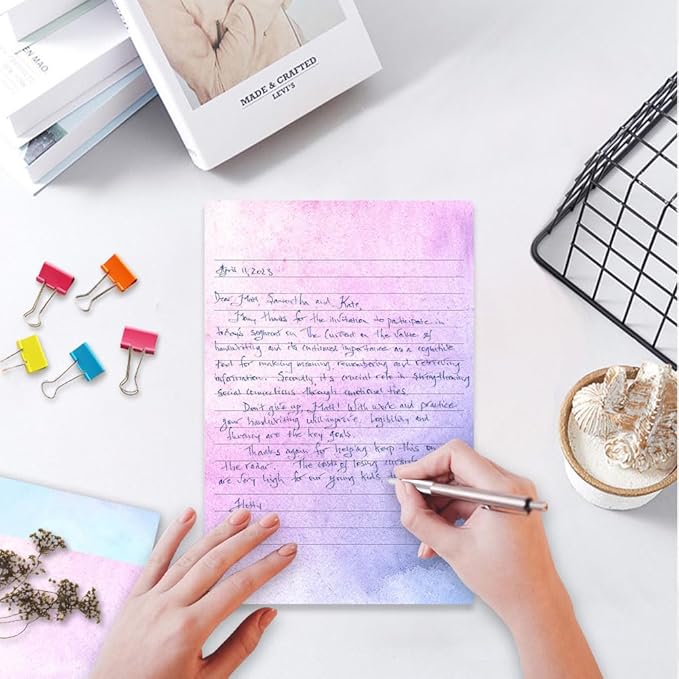 EN MAO
MADE & CRAFTED
LEVI'S
April 11, 2023
Dear Matt, Samantha and Kate,
Many thanks for the invitation to participate in
today's segment on The Current on the value of
handwriting and its continued importance as a cognitive
tool for making meaning, remembering and retrieving
information. Secondly it's crucial role in strengthening
social connections through emotional ties.
Don't give up, Matt! With work and practice
your handwriting will improve. Legibility and
fluency are the key goals.
Thanks again for helping keep this on
the radar. The costs of losing cursive
are very high for our young kids
Hetty